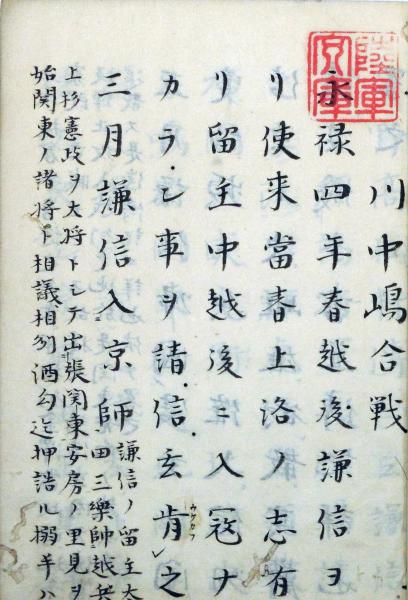 川中嶋合戦
永禄四年春越後謙信ヨ
リ使来當春上洛ノ志有
リ留主中越後ニ入寇ナ
カラン事ヲ請信玄肯之
三月謙信入京師謙信ノ留主太
田三樂師越兵
上杉憲政ヲ大将トシテ出張関東安房ノ里見ヲ
始関東ノ諸将ト相議相刕酒匂迄押詰ル搦手ハ
陸軍